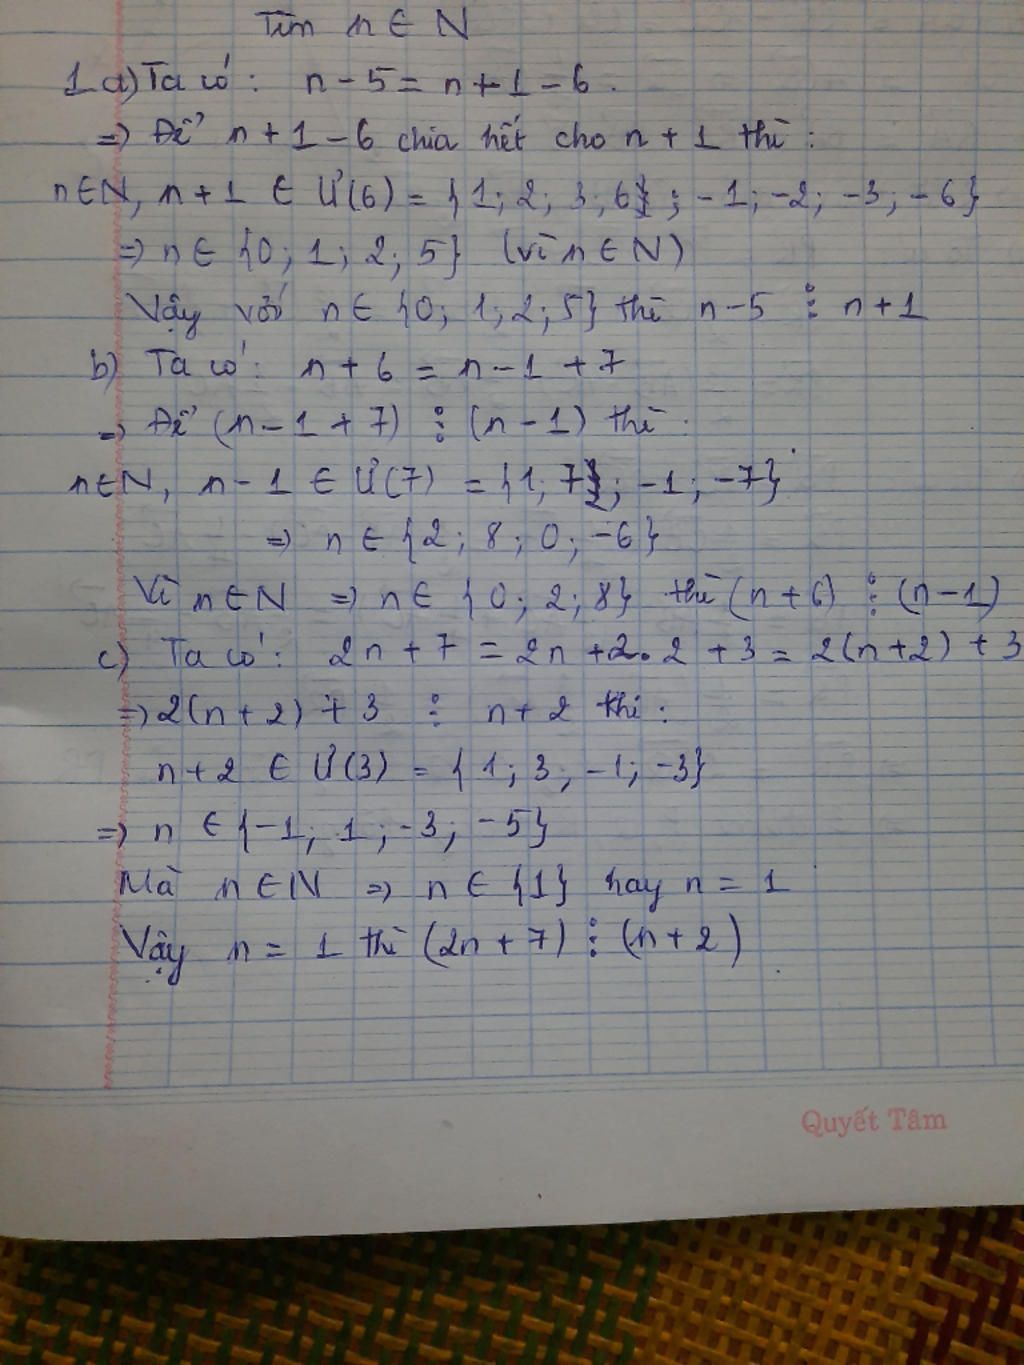 Tìm n ∈ N
1 a) Ta có: n - 5 = n + 1 - 6.
=> Để n + 1 - 6 chia hết cho n + 1 thì:
n∈N, n + 1 ∈ Ư(6) = {1; 2; 3; 6}; -1; -2; -3; -6}
=> n ∈ {0; 1; 2; 5} (vì n ∈ N)
Vậy với n ∈ {0; 1; 2; 5} thì n - 5 ⋮ n + 1
b) Ta có: n + 6 = n - 1 + 7
=> Để (n - 1 + 7) ⋮ (n - 1) thì:
n∈N, n - 1 ∈ Ư(7) = {1; 7}; -1; -7}
=> n ∈ {2; 8; 0; -6}
Vì n∈N => n ∈ {0; 2; 8} thì (n + 6) ⋮ (n - 1)
c) Ta có: 2n + 7 = 2n + 2.2 + 3 = 2(n+2) + 3
=> 2(n + 2) + 3 ⋮ n + 2 thì:
n + 2 ∈ Ư(3) = {1; 3; -1; -3}
=> n ∈ {-1; 1; -3; -5}
Mà n ∈ N => n ∈ {1} hay n = 1
Vậy n = 1 thì (2n + 7) ⋮ (n + 2)
Quyết Tâm